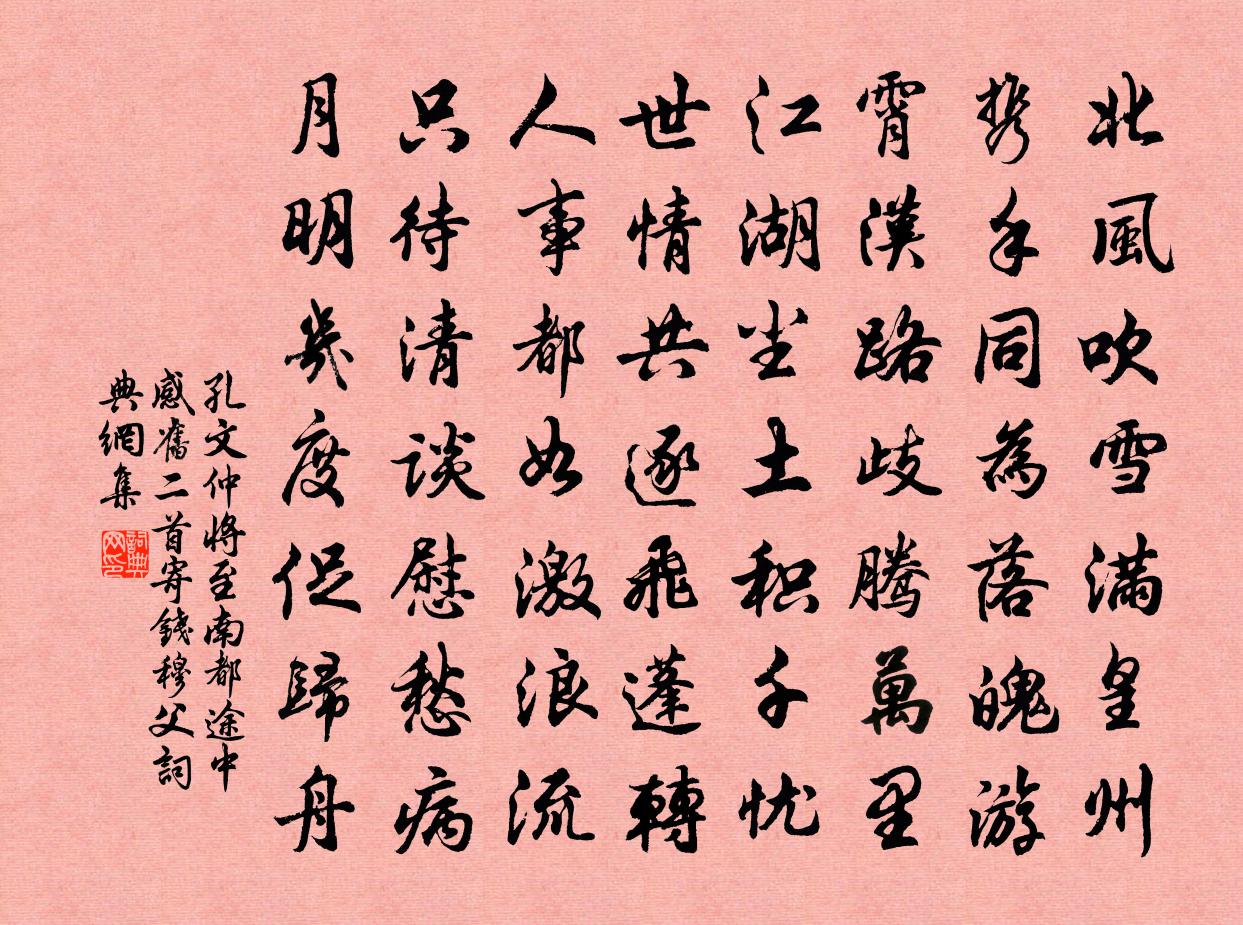 北風吹雪滿皇州
携手同為落魄游
霄漢路歧騰萬里
江湖塵土积千忧
世情共逐飛蓬轉
人事都如激浪流
只待清談慰愁病
月明幾度促歸舟
孔文仲將至南都途中
感舊二首寄錢穆父詞
典網集
詞典网印